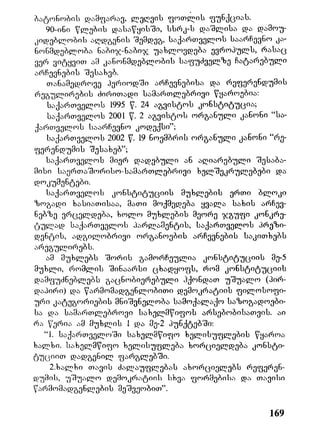 ბატონობის დამყარებ, ლელვის ფოთლის ფუნქციას.
90-იანი წლების დასაწყისში, სსრკ-ს დაშლისა და დამოუ-
კიდებლობის აღდგენის შემდეგ, საქართველოს საარჩევნო კა-
ნონმდებლობა ნაბიჯ-ნაბიჯ უახლოვდება ევროპულს, რასაც
ვერ ვიტყვით ამ კანონმდებლობის საფუძველზე ჩატარებული
არჩევნების შესახებ.
თანამედროვე პერიოდში არჩევნებისა და რეფერენდუმის
რეგულირების ძირითადი სამართლებრივი წყაროებია:
საქართველოს 1995 წ. 24 აგვისტოს კონსტიტუცია;
საქართველოს 2001 წ. 2 აგვისტოს ორგანული კანონი “სა-
ქართველოს საარჩევნო კოდექსი”;
საქართველოს 2002 წ. 19 ნოემბრის ორგანული კანონი “რე-
ფერენდუმის შესახებ”;
საქართველოს მიერ დადებული ან აღიარებული შესაბა-
მისი საერთაშორისო-სამართლებრივი ხელშეკრულებები და
დოკუმენტები.
საქართველოს კონსტიტუციის მუხლების ერთი ბლოკი
ზოგადი ხასიათისაა, მათი მოქმედება ყველა სახის არჩევ-
ნებზე ვრცელდება, ხოლო მუხლების მეორე ჯგუფი კონკრე-
ტულად საქართველოს პარლამენტის, საქართველოს პრეზი-
დენტის, ადგილობრივი ორგანოების არჩევნების საკითხებს
არეგულირებს.
ამ მუხლებს შორის გამორჩეულია კონსტიტუციის მე-5
მუხლი, რომლის შინაარსი ცხადყოფს, რომ კონსტიტუციის
დამფუძნებლებს გაცნობიერებული ჰქონდათ უშუალო (პირ-
დაპირი) და წარმომადგენლობითი დემოკრატიის ფილოსოფი-
ური კატეგორიების მნიშვნელობა სამოქალაქო საზოგადოები-
სა და სამართლებრივი სახელმწიფოს არსებობისათვის. აი
რა წერია ამ მუხლის 1 და მე-2 პუნქტებში:
“1. საქართველოში სახელმწიფო ხელისუფლების წყაროა
ხალხი. სახელმწიფო ხელისუფლება ხორციელდება კონსტი-
ტუციით დადგენილ ფარგლებში.
2.ხალხი თავის ძალაუფლებას ახორციელებს რეფერენ-
დუმის, უშუალო დემოკრატიის სხვა ფორმებისა და თავისი
წარმომადგენლების მეშვეობით”.
169